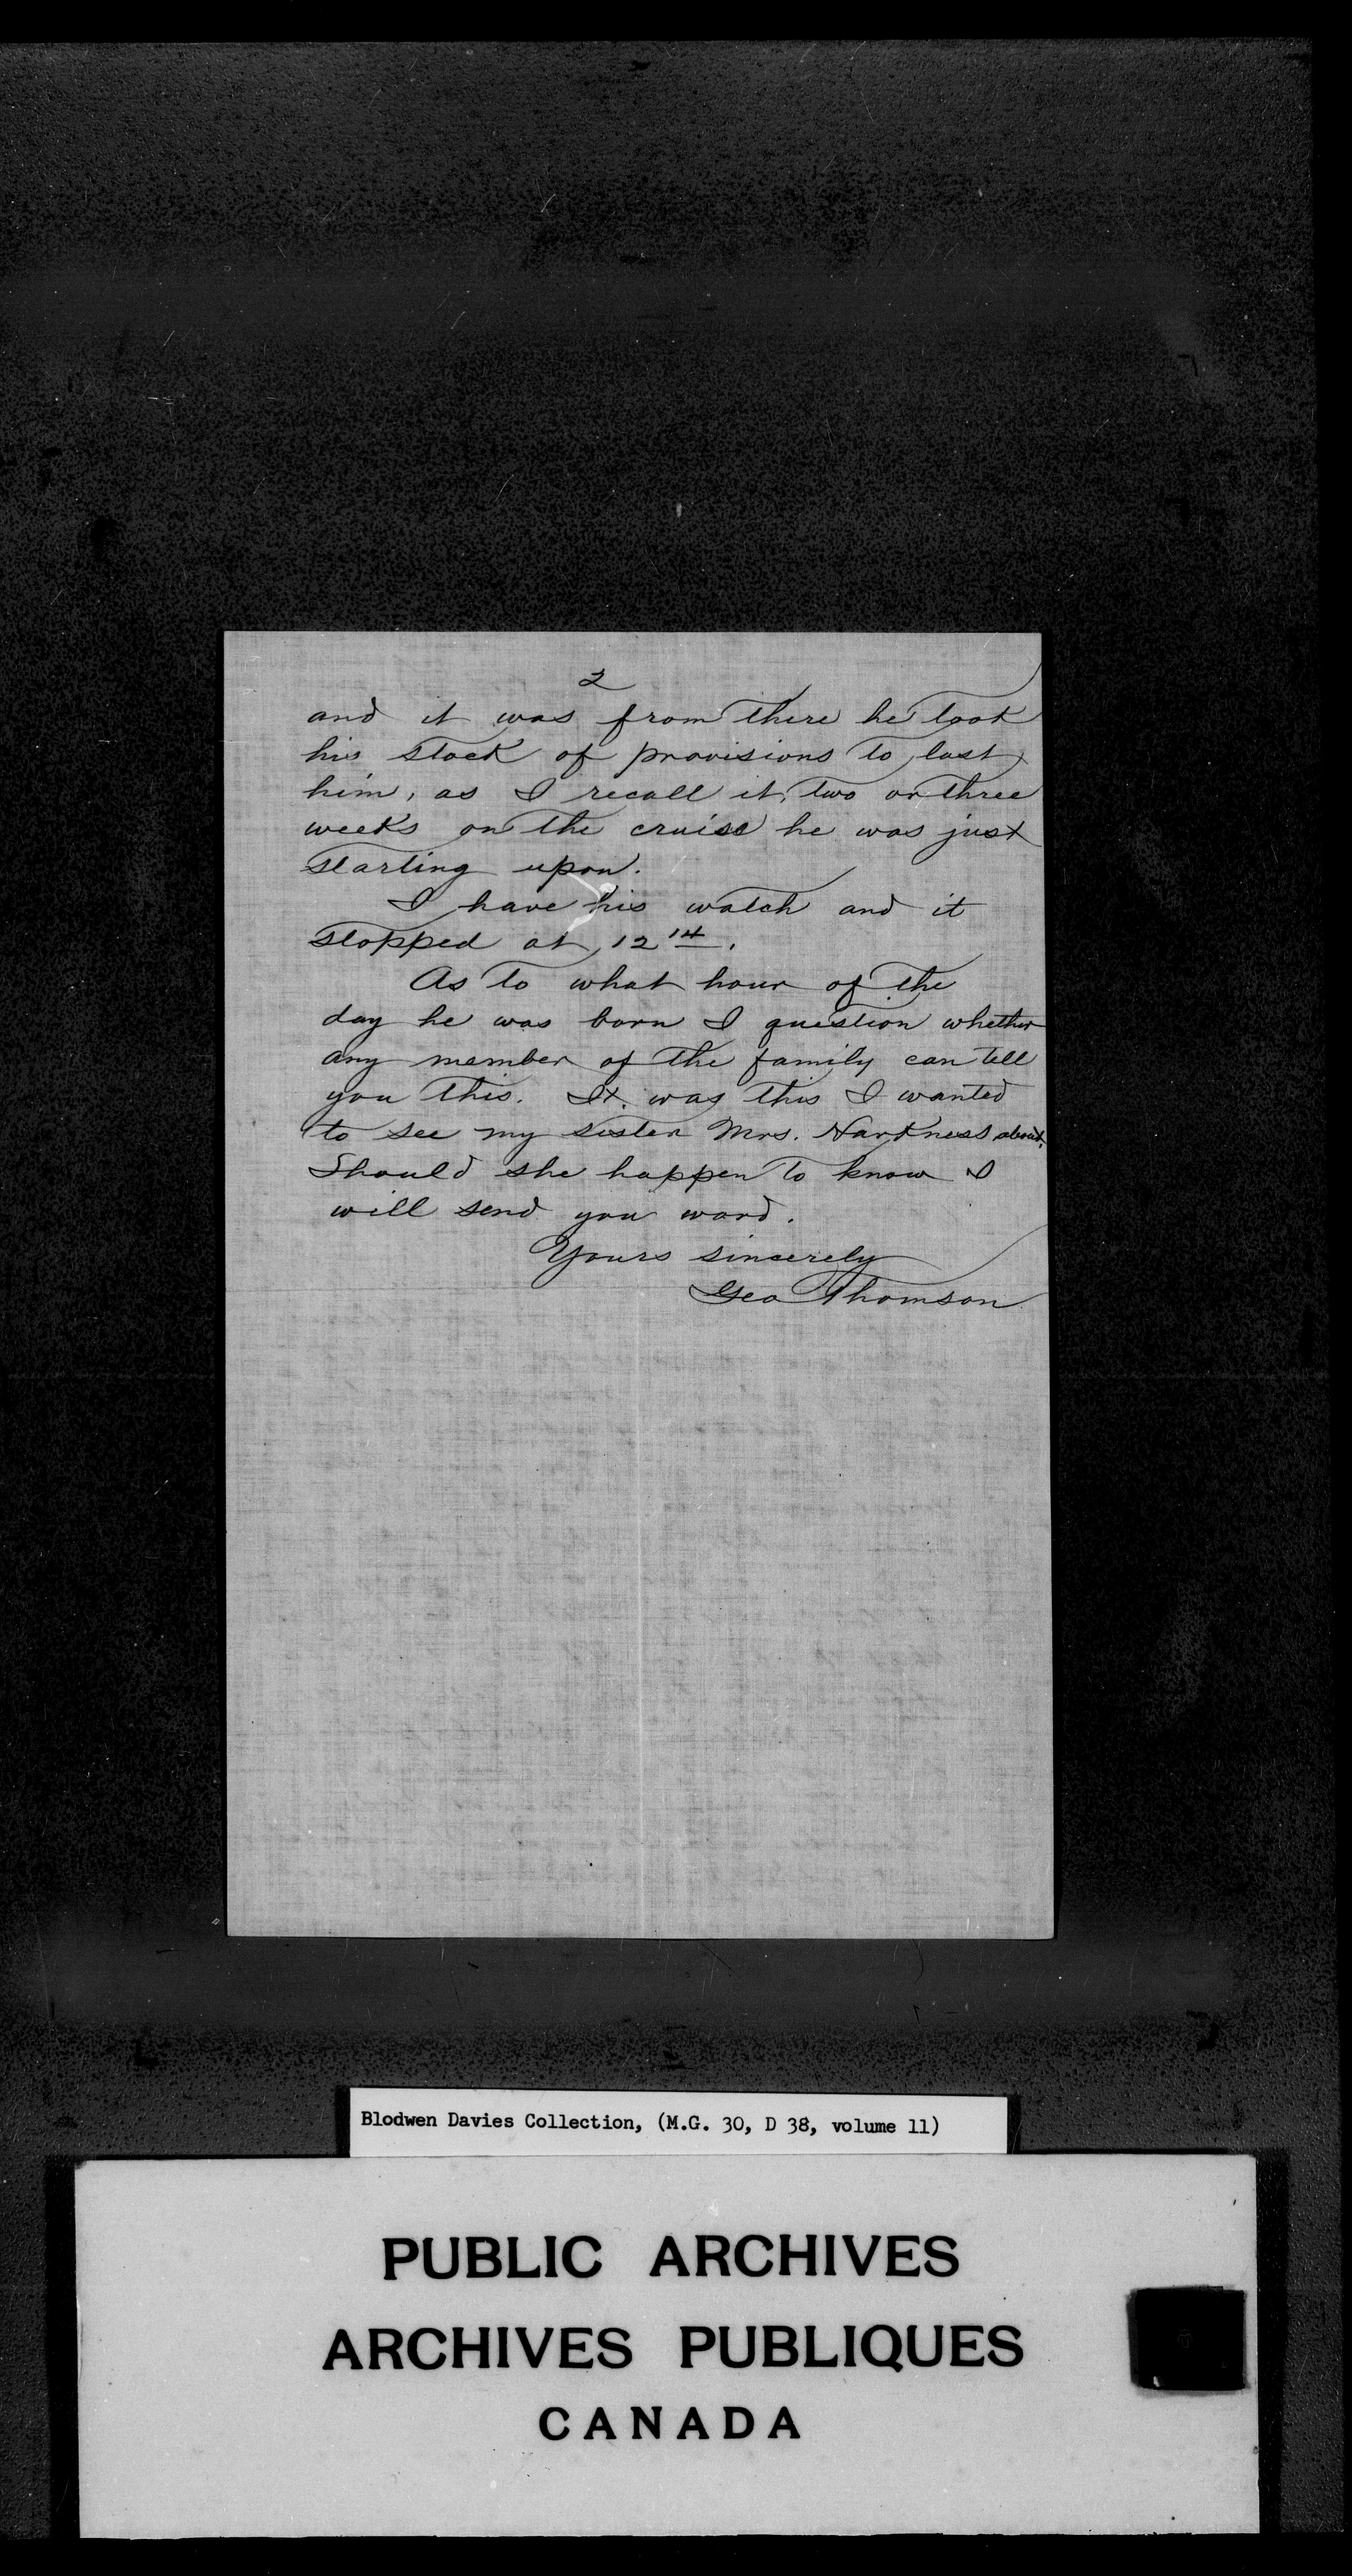 2
and it was from there he took
his stock of provisions to last
him, as I recall it, two or three
weeks on the cruise he was just
starting upon.
I have his watch and it
stopped at 12 14.
As to what hour of the
day he was born I question whether
any member of the family can tell
you this. It was this I wanted
to see my sister Mrs. Harkness about.
Should she happen to know I
will send you word.
Yours sincerely
Geo Thomson
Blodwen Davies Collection, (M.G. 30, D 38, volume 11)
PUBLIC ARCHIVES
ARCHIVES PUBLIQUES
CANADA